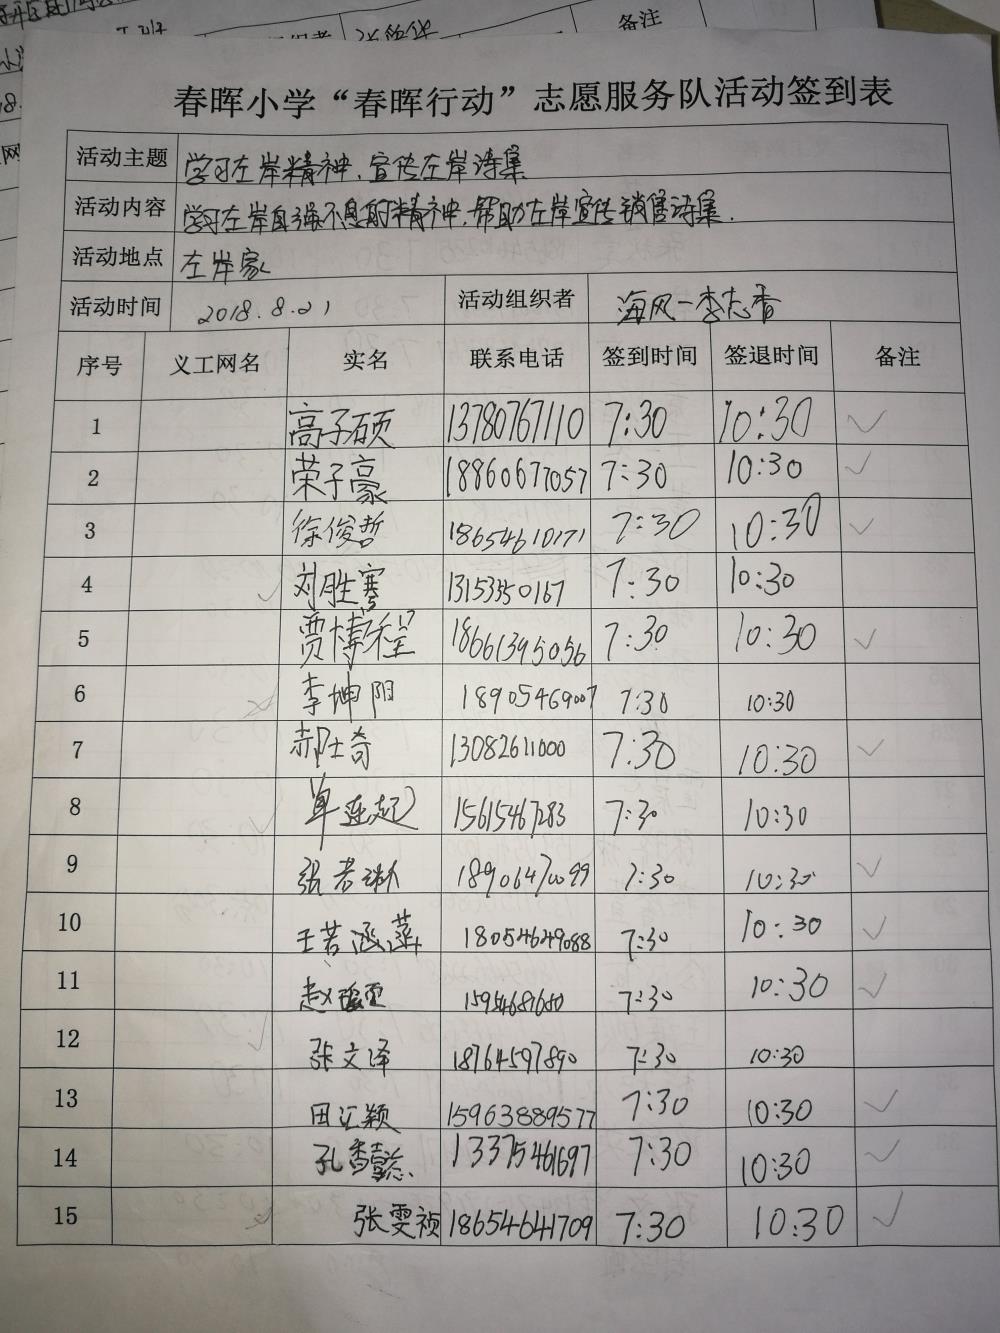 春晖小学“春晖行动”志愿服务队活动签到表
活动主题 学习左岸精神、宣传左岸诗集
活动内容 学习左岸自强不息的精神、帮助左岸宣传销售诗集.
活动地点 左岸家
活动时间 2018.8.21 活动组织者 海风-李志香
序号 义工网名 实名 联系电话 签到时间 签退时间 备注
1 高子硕 13780767110 7:30 10:30 ✓
2 荣子豪 18860677057 7:30 10:30 ✓
3 徐俊哲 18654610171 7:30 10:30 ✓
4 ✓ 刘胜骞 13153350167 7:30 10:30
5 贾博程 18661395056 7:30 10:30 ✓
6 李坤阳 18905469007 7:30 10:30
7 郝仕奇 13082611000 7:30 10:30 ✓
8 ✓ 单连起 15615467283 7:30 10:30
9 张 7:30 10:30 ✓
10 王若涵 18054649088 7:30 10:30 ✓
11 赵 15954687680 7:30 10:30 ✓
12 ✓ 张文泽 18764597890 7:30 10:30
13 田汇颖 15963889577 7:30 10:30 ✓
14 孔香懿 13375461697 7:30 10:30 ✓
15 张雯祯 18654641709 7:30 10:30 ✓